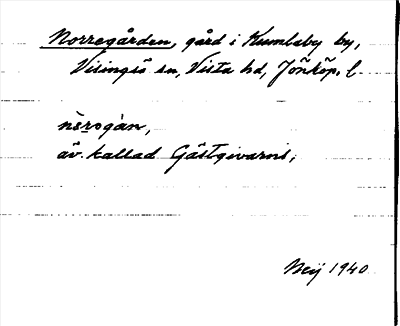 Norregården, gård i Kumlaby by,
Visingsö sn, Vista hd, Jönköp. l.
nèrogàn,
äv. kallad Gästgivarns,
1940